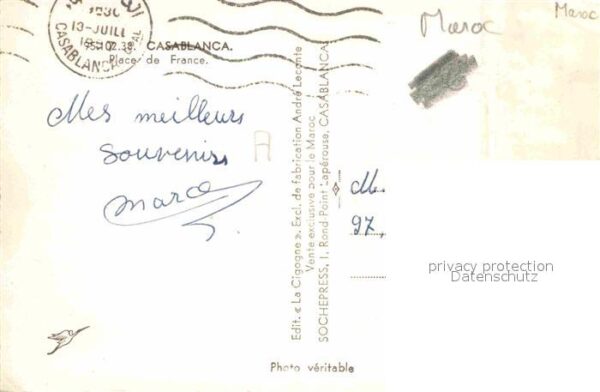 13-JUILL
CASABLANCA
99.102.38. CASABLANCA.
Place de France.
Mes meilleurs
souvenirs
Maroc
Maroc
Edit. « La Cigogne ». Excl. de fabrication André Leconte
Vente exclusive pour le Maroc
SOCHEPRESS, 1, Rond-Point Lapérouse, CASABLANCA
97,
privacy protection
Datenschutz
Photo véritable